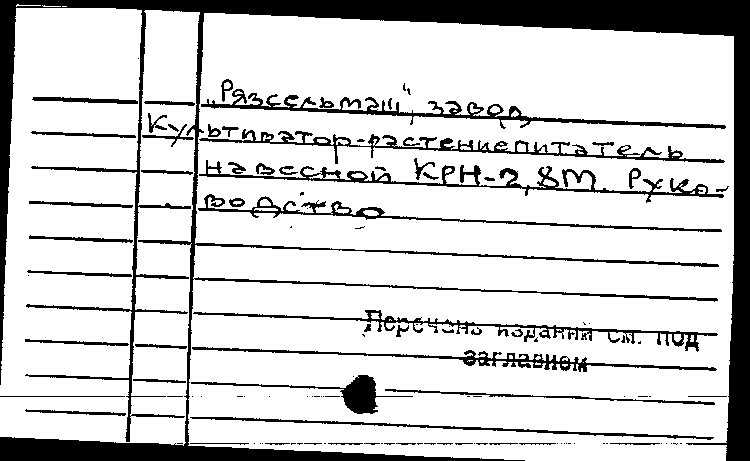 „Рязсельмаш", завод
Культиватор-растениепитатель
навесной КРН-2,8М. Руко-
водство
Перечень изданий см. под
заглавием